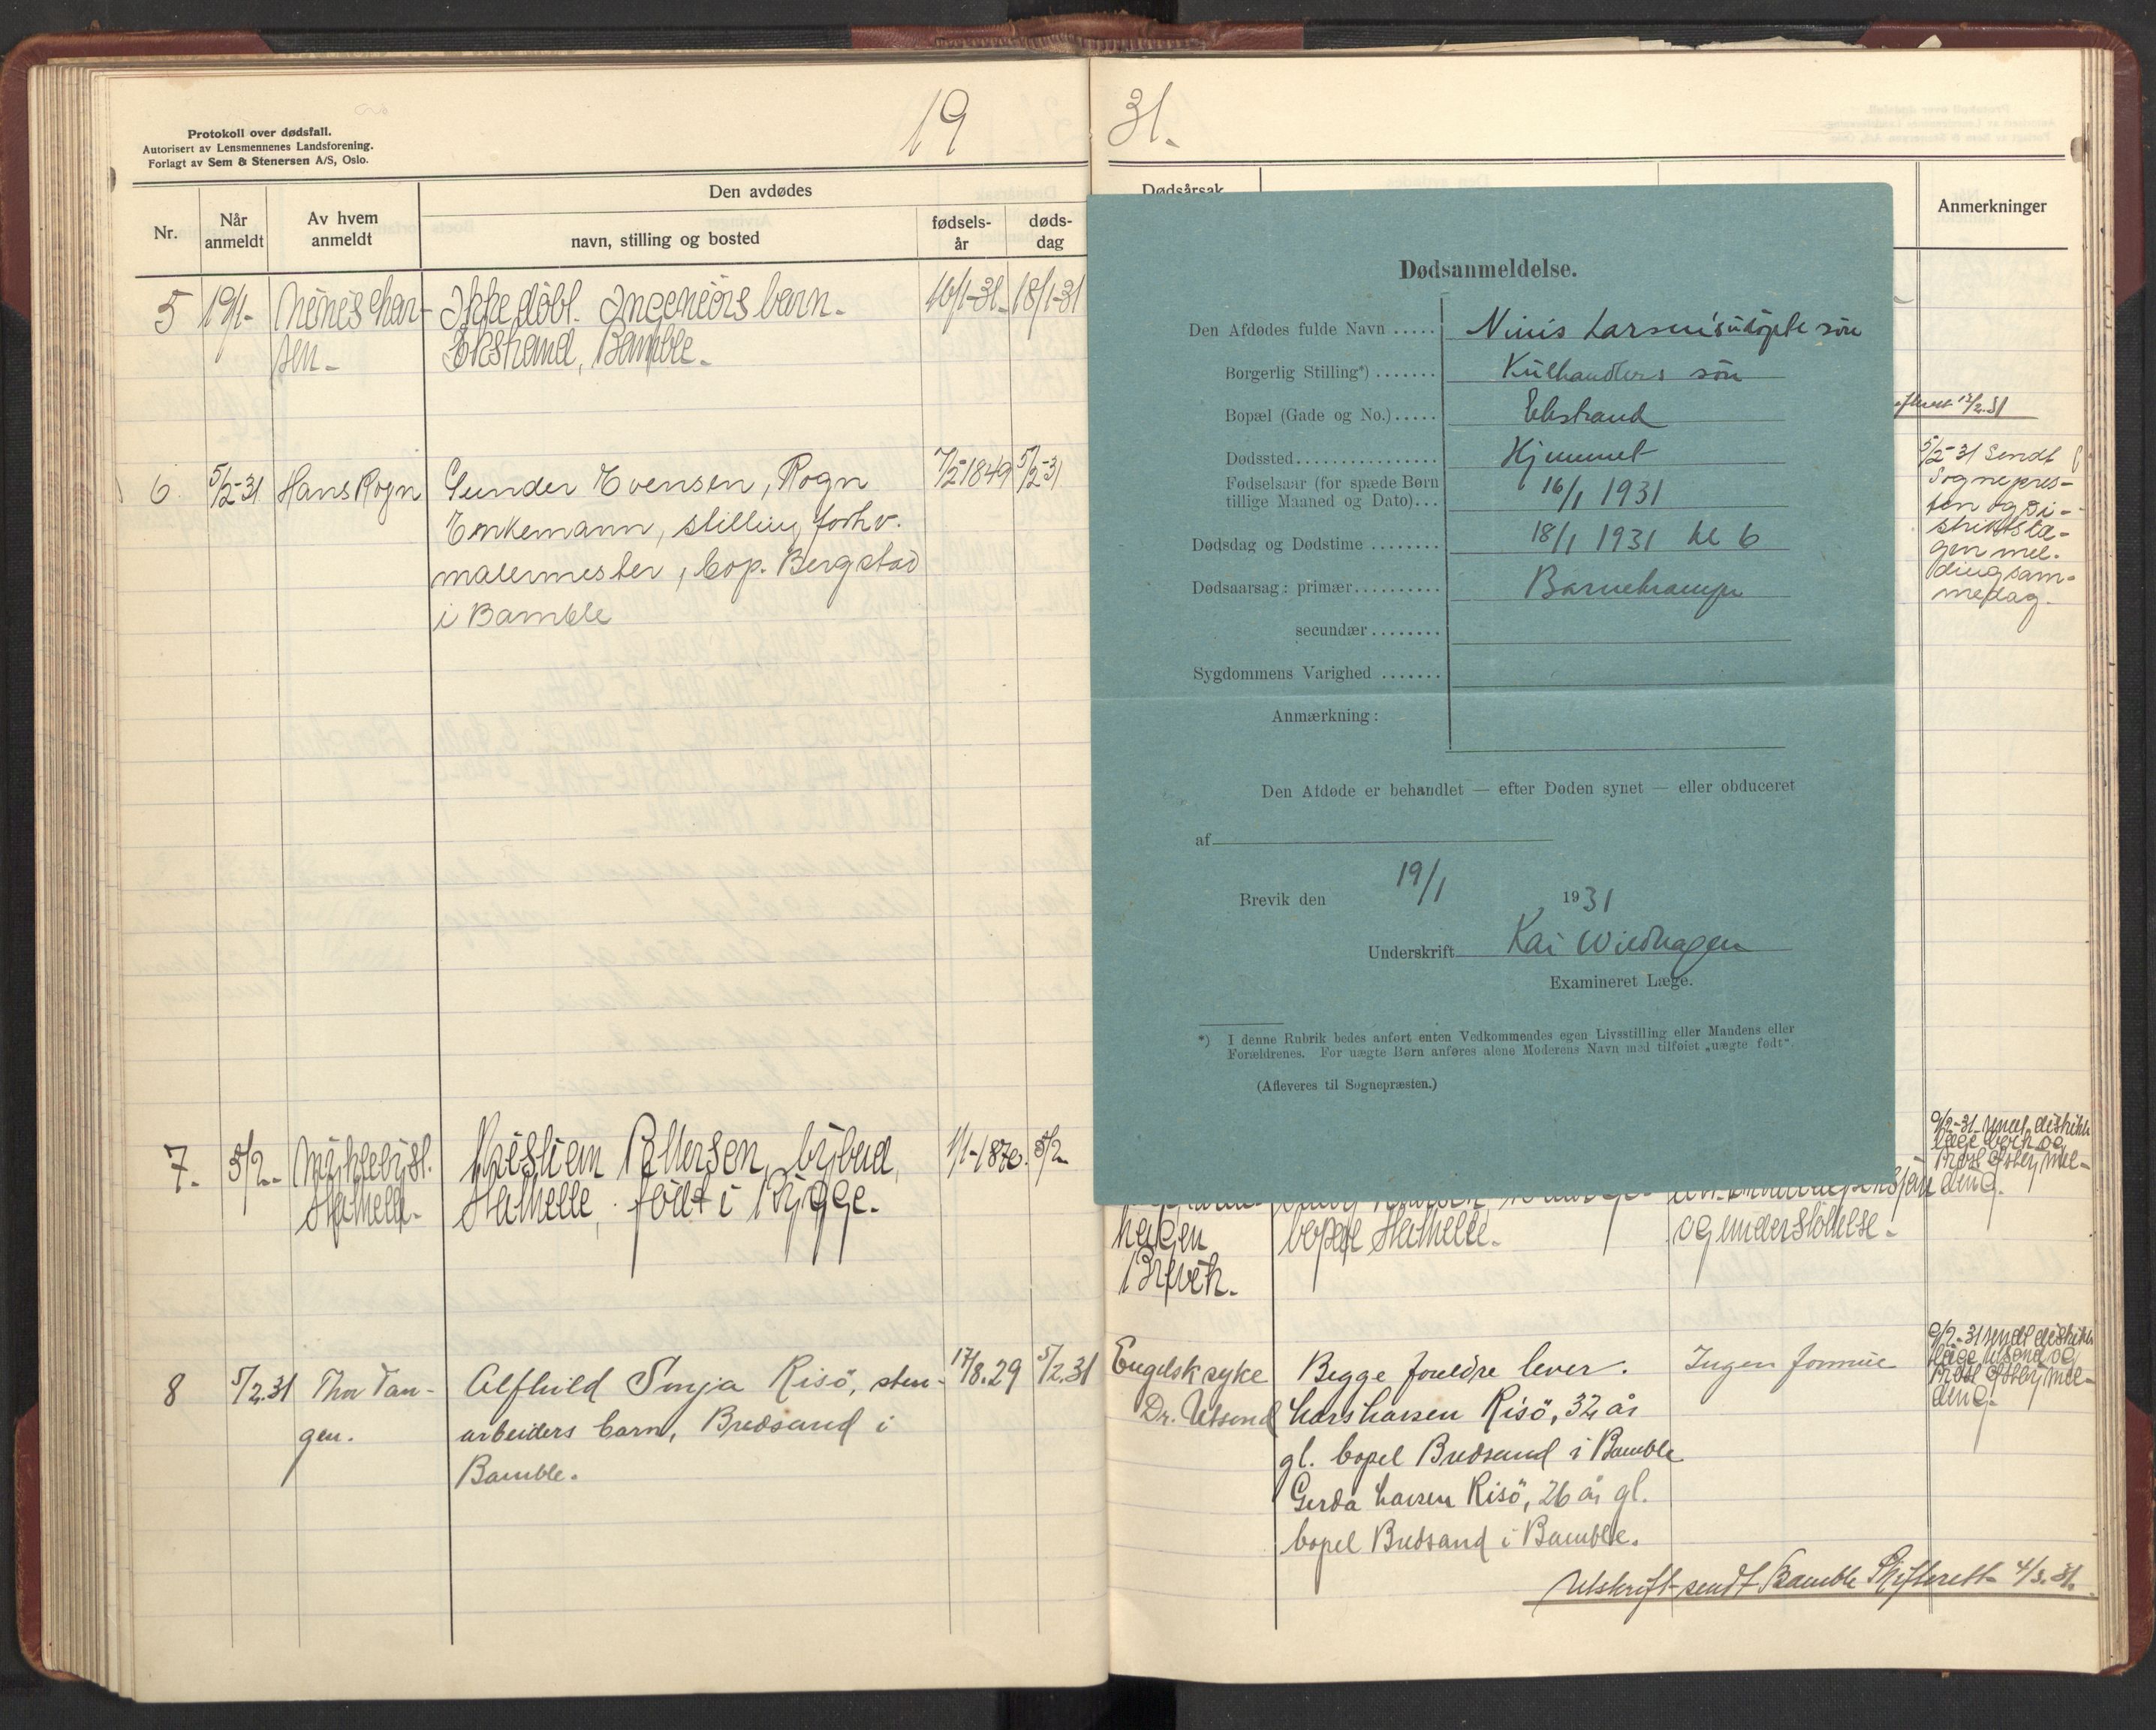 Protokoll over dødsfall.
Autorisert av Lensmennenes Landsforening.
Forlagt av Sem & Stenersen A/S, Oslo.
19
Nr.
Når
anmeldt
Av hvem
anmeldt
Den avdødes
navn, stilling og bosted
fødsels-
år
døds-
dag
5
19/1-
Ninis Lar-
sen-
Ikke døbt. Ingeniørs barn-
Ekstrand, Bamble-
16/1-31-
18/1-31
6
5/2-31
Hans Rogn
Gunder Evensen, Rogn
Enkemann, stilling forhv.
malermester, bop. Bergstad
i Bamble
7/2 1849
5/2-31
7-
5/2-
Stathelle-
Kristian Pettersen, bybud,
Stathelle, født i Rygge-
5/2-
8
5/2.31
Thor Tan-
gen.
Alfhild Sonja Risö, sten-
arbeiders barn, Bredsand i
Bamble.
17/8.29
5/2.31
31.
Dødsårsak
Anmerkninger
Dødsanmeldelse.
Den Afdødes fulde Navn ..... Ninis Larsen's udöpte sön
Borgerlig Stilling*) ....... Kulhandlers sön
Bopæl (Gade og No.)..... Ekstrand
Dødssted................ Hjemmet
Fødselsaar (for spæde Børn
tillige Maaned og Dato)... 16/1 1931
Dødsdag og Dødstime ........ 18/1 1931 kl 6
Dødsaarsag: primær.......... Barnekrampe
secundær ........
Sygdommens Varighed .......
Anmærkning:
Den Afdøde er behandlet — efter Døden synet — eller obduceret
af
Brevik den 19/1 1931
Underskrift Kai Wiedhagen
Examineret Læge.
*) I denne Rubrik bedes anført enten Vedkommendes egen Livsstilling eller Mandens eller
Forældrenes. For uægte Børn anføres alene Moderens Navn med tilføiet „uægte født“.
(Afleveres til Sognepræsten.)
13/2.31
5/2-31 Sendt
Sognepres-
ten og Di-
striktslæ-
gen mel-
ding sam-
medag.
hagen
Brevik-
bopæl Stathelle-
og understöttelse-
9/2-31 sendt distrikts
læge
Prost Østby mel-
ding-
Engelsk syke
Dr. Utsond
Begge foreldre lever.
Lars Larsen Risö, 32 år
gl. bopel Bredsand i Bamble
Gerda Larsen Risö, 26 år gl.
bopel Bredsand i Bamble.
Ingen formue
9/2-31 sendt distrikts
læge Utsond og
Prost Østby mel-
ding-
Utskrift sendt Bamble Skifterett 4/3.31.